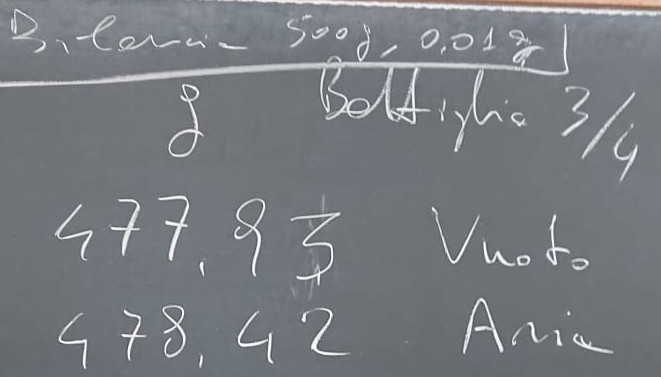 Bilancia 500g, 0,01g
g Bottiglia 3/4
477,93 Vuoto
478,42 Aria